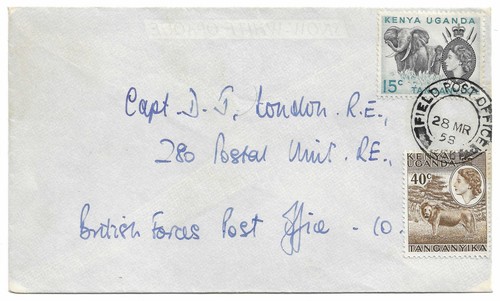 KENYA UGANDA
15c
TANGANYIKA
FIELD POST OFFICE
28 MR
58
Capt. D. J. London. R.E.,
280 Postal Unit. RE.,
British Forces Post Office - 10.
KENYA
UGANDA
40c
TANGANYIKA